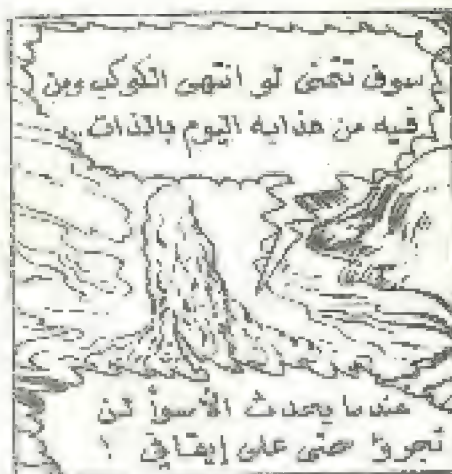 سوف تتمنى لو انتهى الكوكب ومن
فيه من عذابه اليوم بالذات..
عندما يحدث الأسوأ لن
تجرؤا حتى على إيقافي !